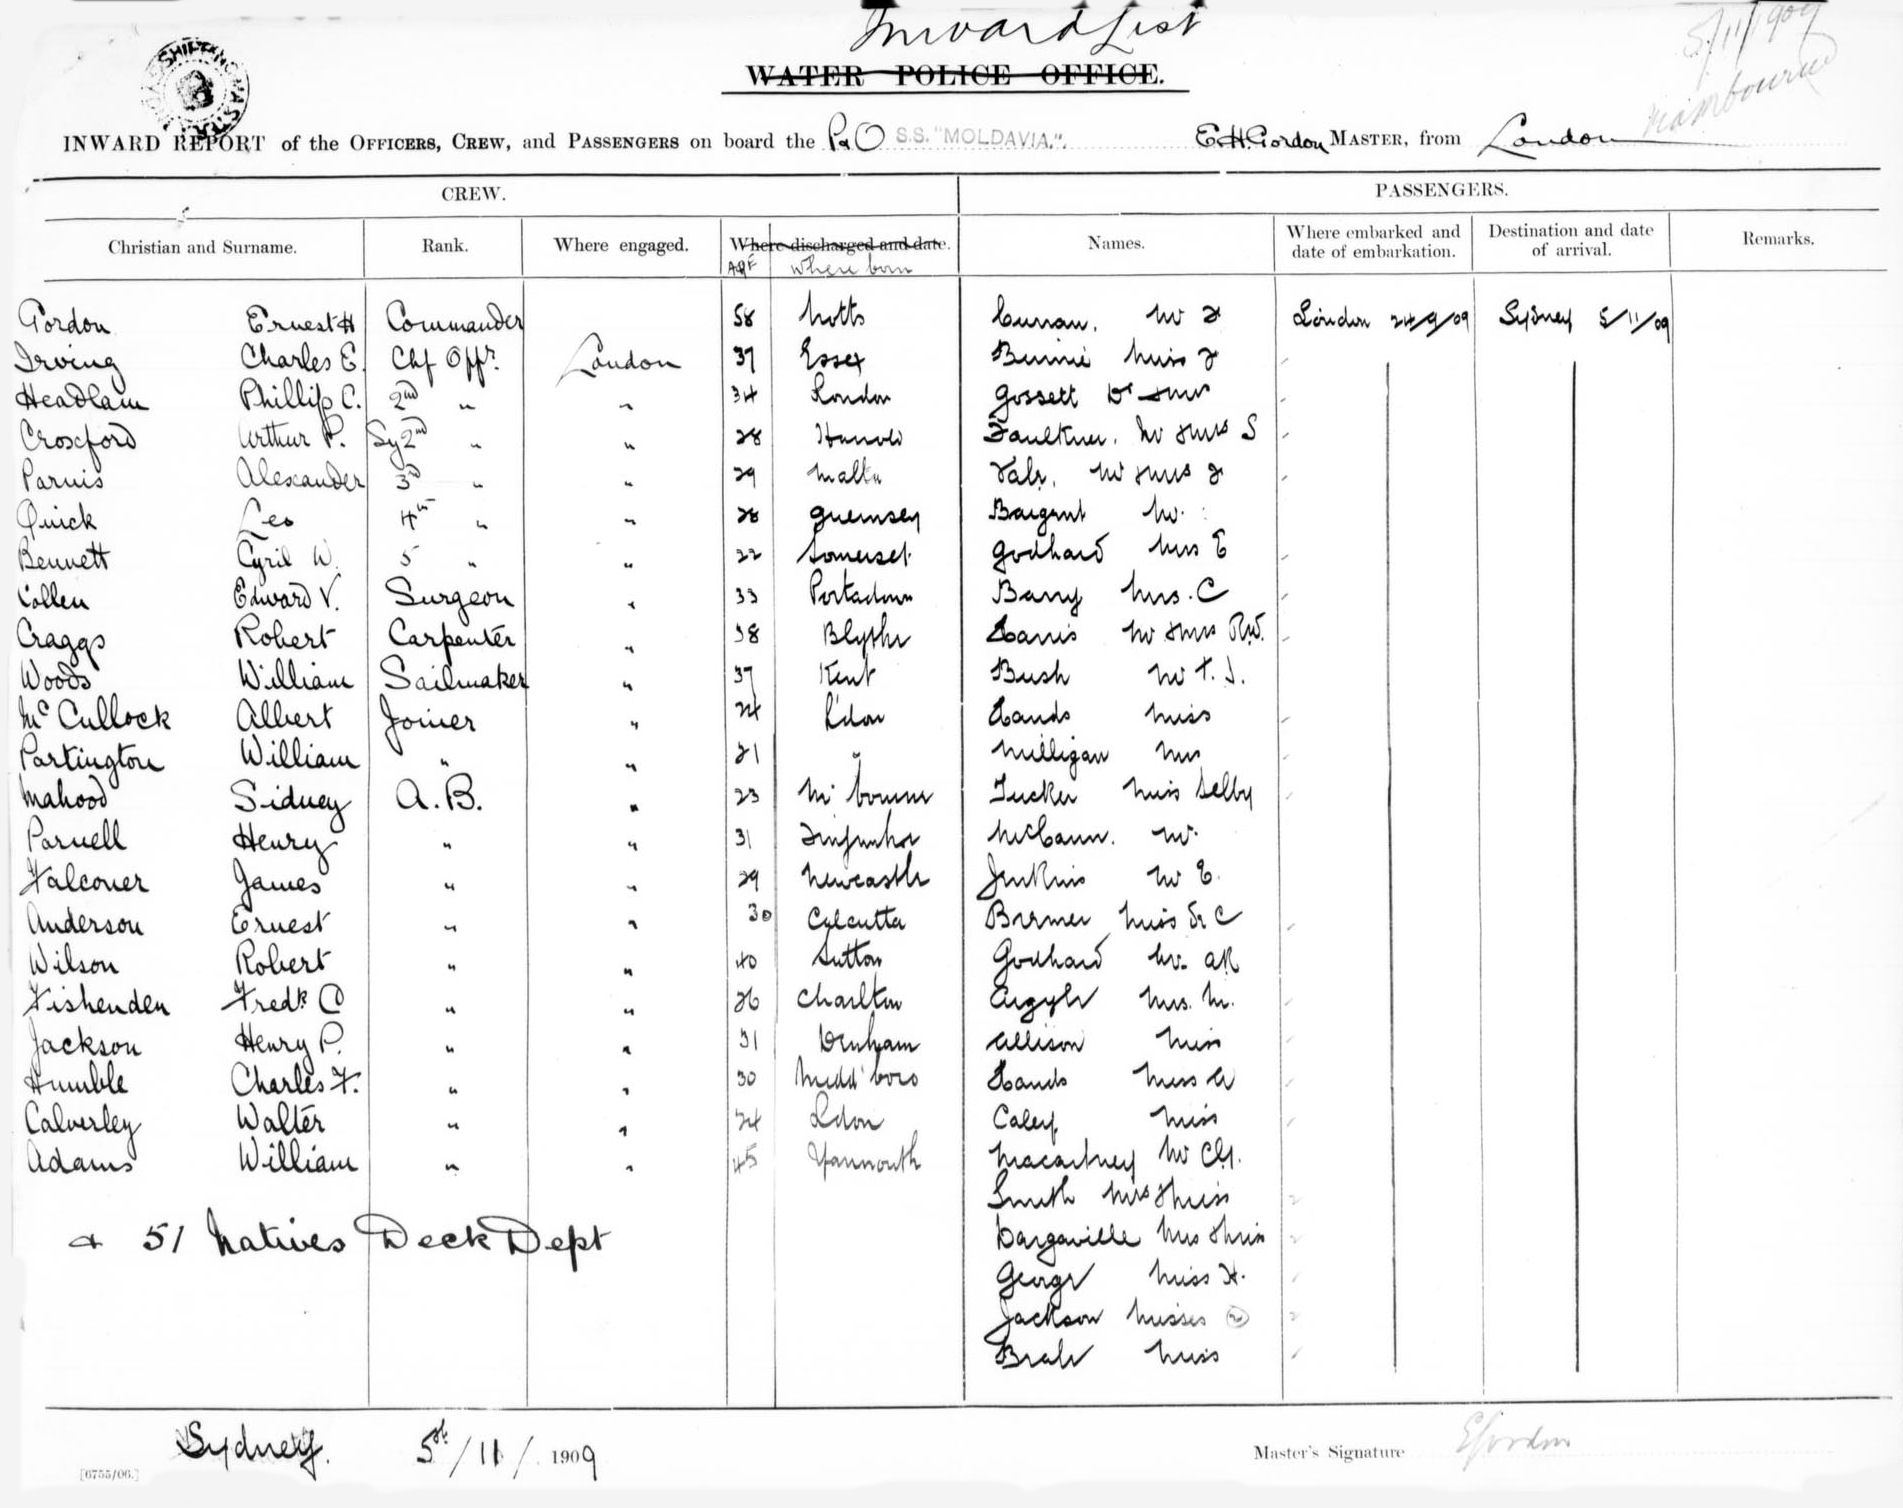 Inward List
5/11/1909
WATER POLICE OFFICE.
INWARD REPORT of the OFFICERS, CREW, and PASSENGERS on board the P&O S.S. "MOLDAVIA." E.H. Gordon MASTER, from London
CREW. PASSENGERS.
Christian and Surname. Rank. Where engaged. Where discharged and date. Names. Where embarked and date of embarkation. Destination and date of arrival. Remarks.
Age where born
Gordon Ernest H Commander 58 Notts Curran. Mr J London 24/9/09 Sydney 5/11/09
Irving Charles E. Chf Offr. London 37 Essex Binnie Miss J
Headlam Phillip C. 2nd " " 34 London Gossett Dr & Mrs
Croxford Arthur P. Sy 2nd " " 28 Faulkner. Mr & Mrs S
Parnis Alexander 3rd " " 29 Malta Mr & Mrs J
Quick Leo 4th " " 28 Guernsey Bargent Mr.
Bennett Cyril W. 5 " " 22 Somerset Godhard Miss E
Collen Edward V. Surgeon " 33 Portadown Barry Mrs. C
Craggs Robert Carpenter " 38 Blythe Harris Mr & Mrs R.W.
Woods William Sailmaker " 37 Kent Bush Mr F. J.
McCullock Albert Joiner " 24 L'don Hands Miss
Partington William " " 21 " Milligan Mrs
Mahood Sidney A.B. " 23 M'bourne Tucker Miss Selby
Parnell Henry " " 31 McCann. Mr.
Falconer James " " 29 Newcastle Jenkins Mr E.
Anderson Ernest " " 30 Calcutta Bremer Miss & C
Wilson Robert " " 40 Sutton Godhard Mr. AR
Fishenden Fredk. C " " 26 Charlton Argyle Mrs. M.
Jackson Henry P. " " 31 Denham Allison Miss
Humble Charles F. " " 30 Midd'boro Hands Miss A
Calverley Walter " " 24 Ldon Caley Miss
Adams William " " 45 Yarmouth Macartney Mr
Smith Mrs & Miss
& 51 Natives Deck Dept Dargaville Mrs & Miss
George Miss H.
Jackson Misses 2
Brale Miss
Sydney. 5th/11/1909 Master's Signature EGordon
[6755/06.]